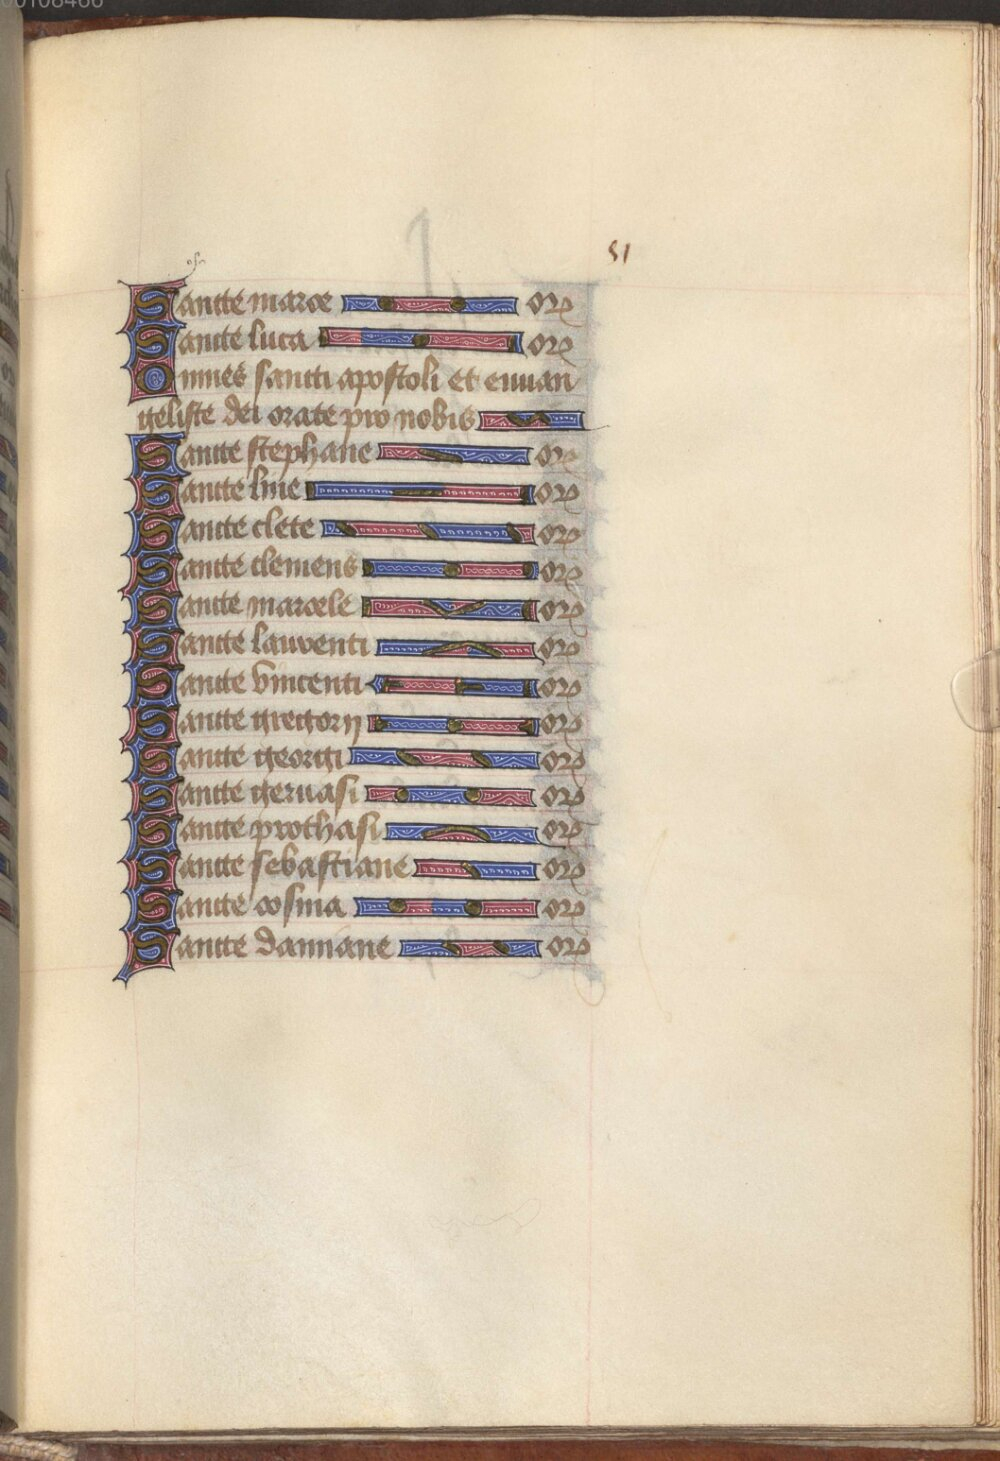 51
Sancte marce orꝫ
Sancte luca orꝫ
Omnes sancti apostoli et euuan
geliste dei orate pro nobis
Sancte stephane orꝫ
Sancte line orꝫ
Sancte clete orꝫ
Sancte clemens orꝫ
Sancte marcele orꝫ
Sancte laurenti orꝫ
Sancte vincenti orꝫ
Sancte gregorij orꝫ
Sancte georgi orꝫ
Sancte geruasi orꝫ
Sancte prothasi orꝫ
Sancte sebastiane orꝫ
Sancte cosma orꝫ
Sancte damiane orꝫ